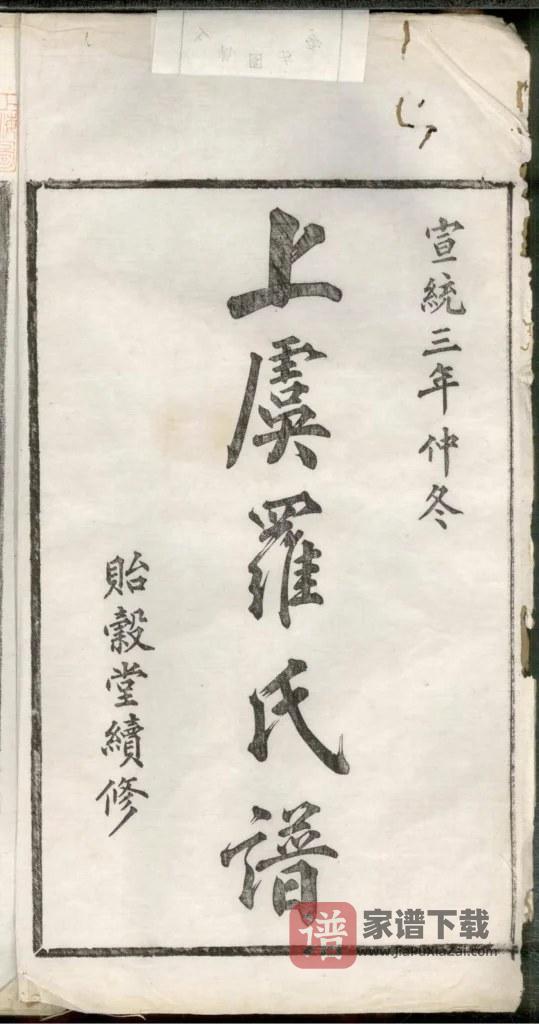 宣統三年仲冬
上虞羅氏譜
貽穀堂續修
谱
家谱下载
www.jiapuxiazai.com